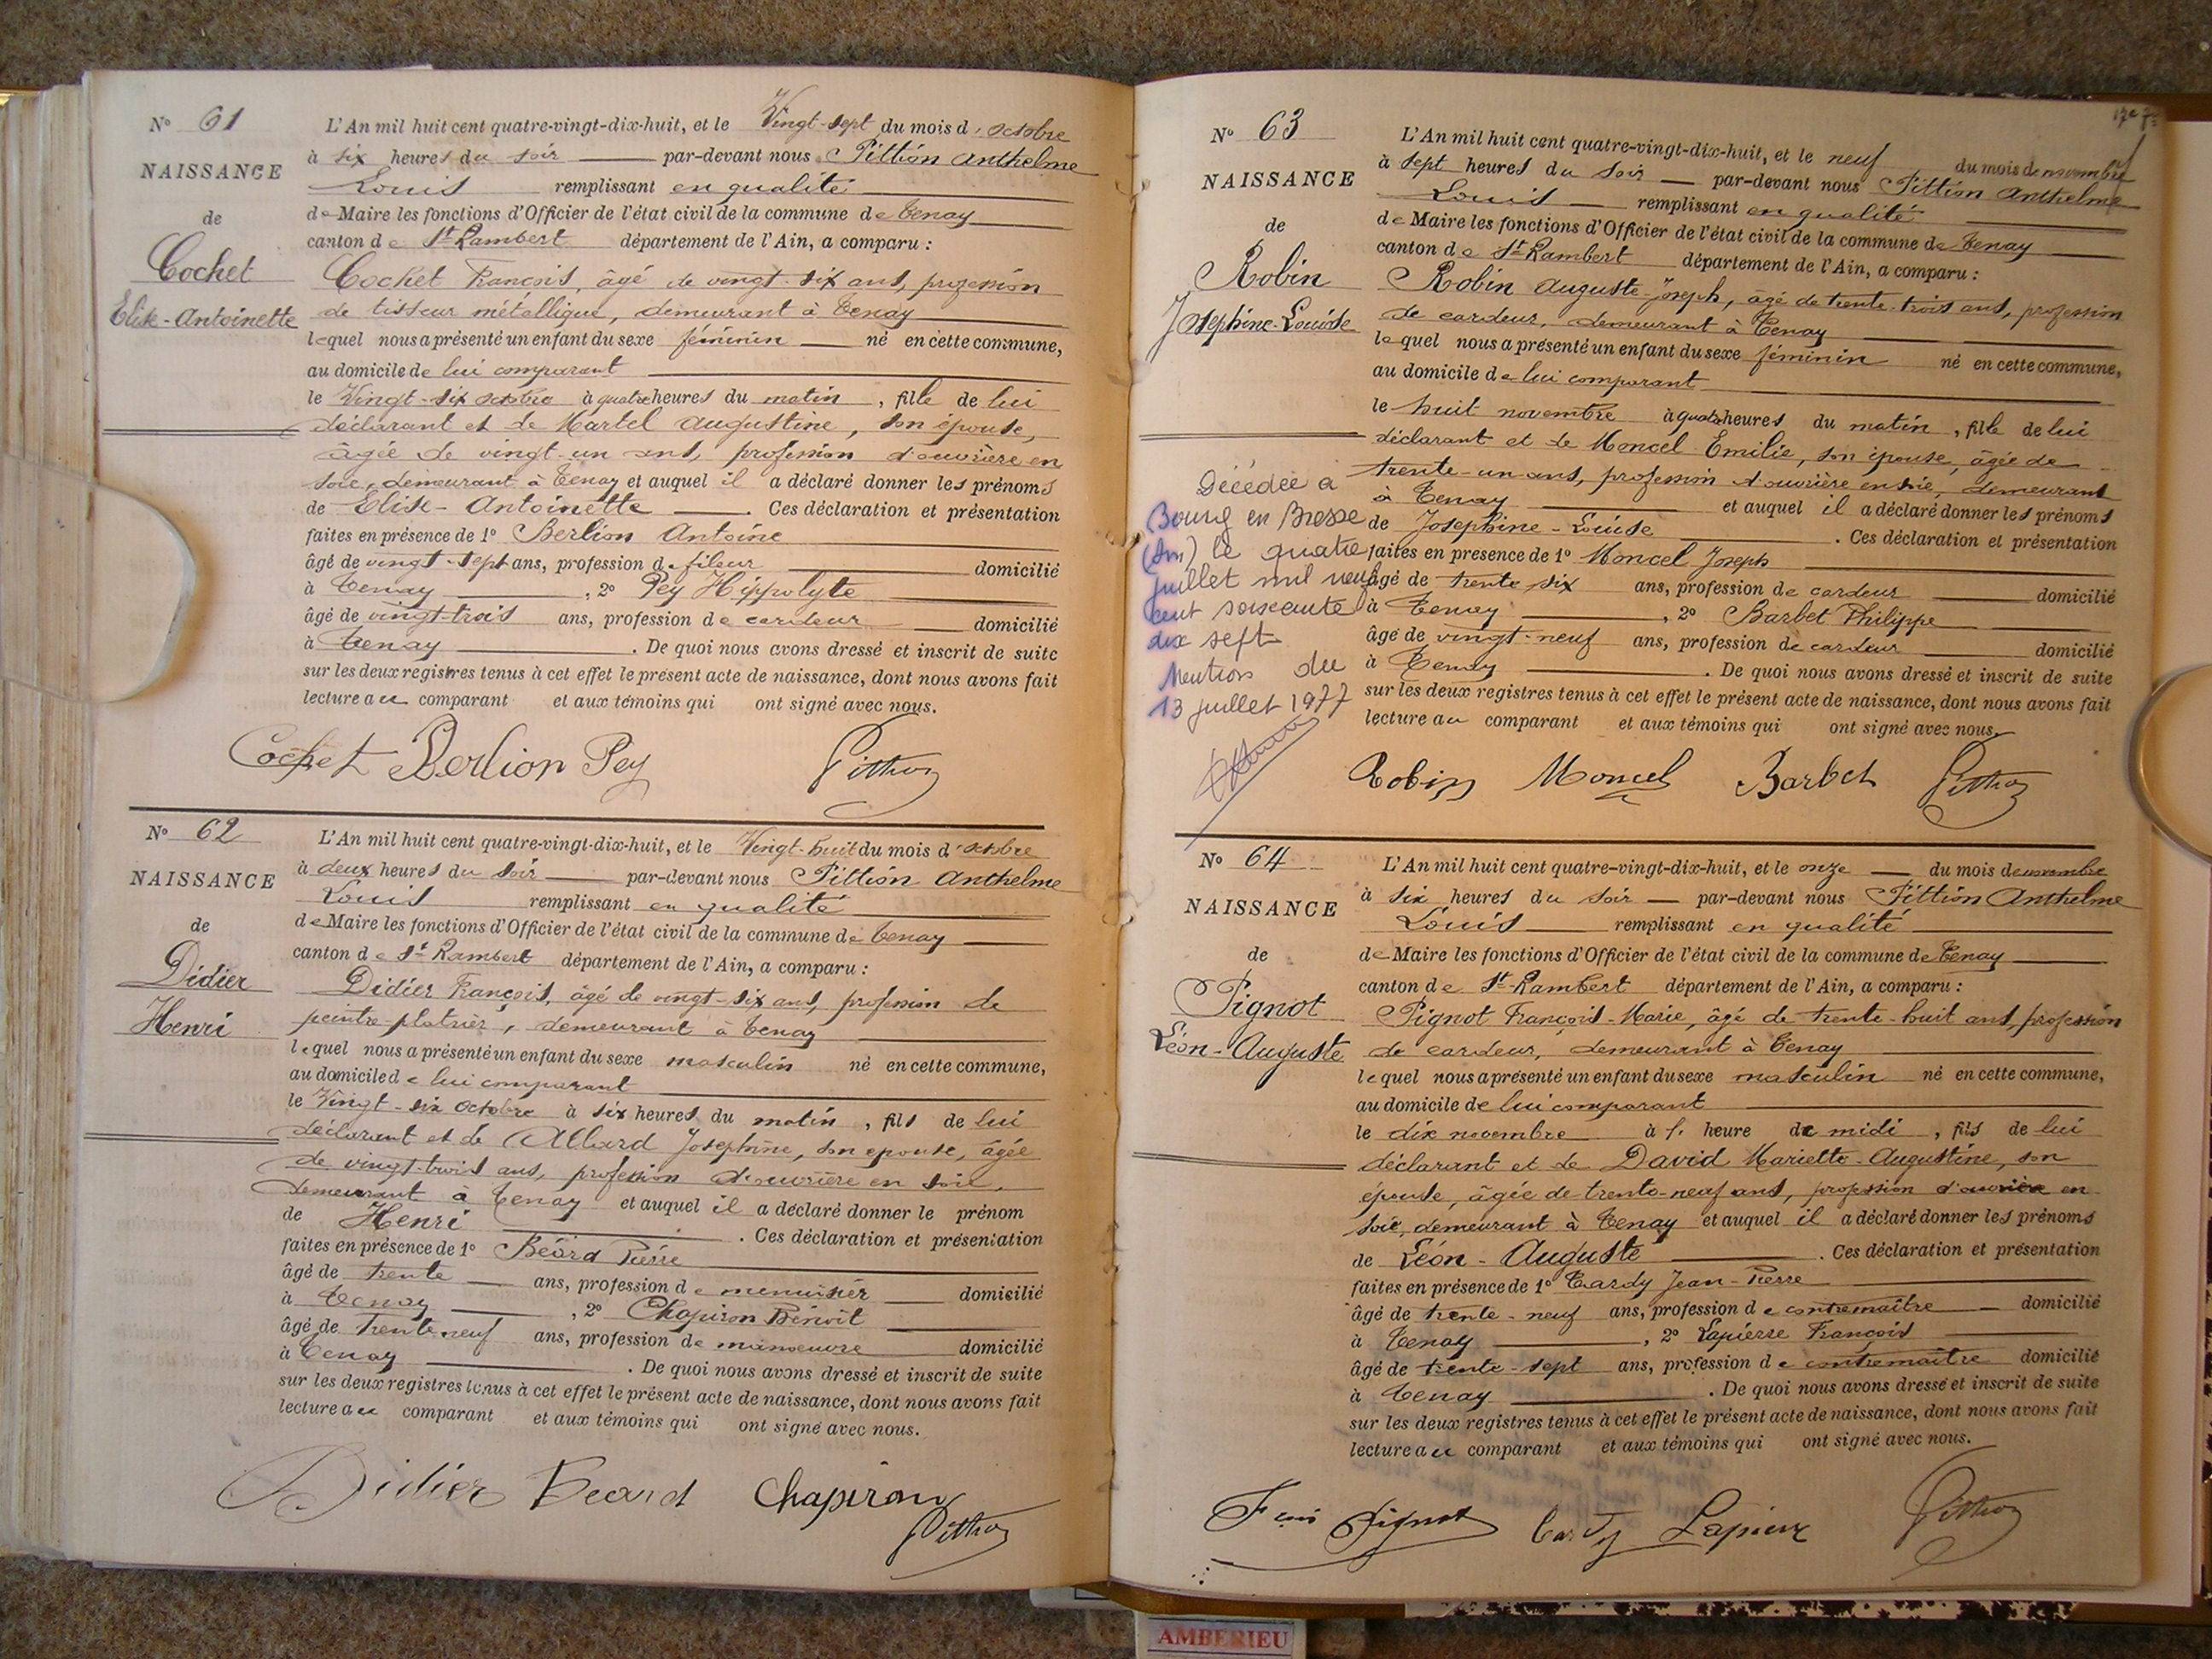 N° 61
NAISSANCE
de
Cochet
Elise-Antoinette
L'An mil huit cent quatre-vingt-dix-huit, et le Vingt-sept du mois d'octobre
à six heures du soir par-devant nous Pittion Anthelme
Louis remplissant en qualité
de Maire les fonctions d'Officier de l'état civil de la commune de Tenay
canton de St Rambert département de l'Ain, a comparu :
Cochet François, âgé de vingt-six ans, profession
de tisseur métallique, demeurant à Tenay
lequel nous a présenté un enfant du sexe féminin né en cette commune,
au domicile de lui comparant
le Vingt-six octobre à quatre heures du matin, fille de lui
déclarant et de Martel Augustine, son épouse,
âgée de vingt-un ans, profession d'ouvrière en
soie, demeurant à Tenay et auquel il a déclaré donner les prénoms
de Elise-Antoinette. Ces déclaration et présentation
faites en présence de 1° Berlion Antoine
âgé de vingt-sept ans, profession de fileur domicilié
à Tenay, 2° Pey Hippolyte
âgé de vingt-trois ans, profession de cardeur domicilié
à Tenay. De quoi nous avons dressé et inscrit de suite
sur les deux registres tenus à cet effet le présent acte de naissance, dont nous avons fait
lecture au comparant et aux témoins qui ont signé avec nous.
Cochet Berlion Pey Pittion
N° 62
NAISSANCE
de
Didier
Henri
L'An mil huit cent quatre-vingt-dix-huit, et le Vingt-huit du mois d'octobre
à deux heures du soir par-devant nous Pittion Anthelme
Louis remplissant en qualité
de Maire les fonctions d'Officier de l'état civil de la commune de Tenay
canton de St Rambert département de l'Ain, a comparu :
Didier François, âgé de vingt-six ans, profession de
peintre-platrier, demeurant à Tenay
lequel nous a présenté un enfant du sexe masculin né en cette commune,
au domicile de lui comparant
le Vingt-six octobre à six heures du matin, fils de lui
déclarant et de Allard Josephine, son épouse, âgée
de vingt-trois ans, profession d'ouvrière en soie,
demeurant à Tenay et auquel il a déclaré donner le prénom
de Henri. Ces déclaration et présentation
faites en présence de 1° Béard Pierre
âgé de trente ans, profession de menuisier domicilié
à Tenay, 2° Chapiron Benoit
âgé de trente neuf ans, profession de manoeuvre domicilié
à Tenay. De quoi nous avons dressé et inscrit de suite
sur les deux registres tenus à cet effet le présent acte de naissance, dont nous avons fait
lecture au comparant et aux témoins qui ont signé avec nous.
Didier Beard Chapiron
Pittion
N° 63
NAISSANCE
de
Robin
Josephine-Louise
Décédée à
Bourg en Bresse
(Ain) le quatre
juillet mil neuf
cent soixante
dix sept
Mention du
13 juillet 1977
L'An mil huit cent quatre-vingt-dix-huit, et le neuf du mois de novembre
à sept heures du soir par-devant nous Pittion Anthelme
Louis remplissant en qualité
de Maire les fonctions d'Officier de l'état civil de la commune de Tenay
canton de St Rambert département de l'Ain, a comparu :
Robin Auguste-Joseph, âgé de trente-trois ans, profession
de cardeur, demeurant à Tenay
lequel nous a présenté un enfant du sexe féminin né en cette commune,
au domicile de lui comparant
le huit novembre à quatre heures du matin, fille de lui
déclarant et de Moncel Emilie, son épouse, âgée de
trente-un ans, profession d'ouvrière en soie, demeurant
à Tenay et auquel il a déclaré donner les prénoms
de Josephine-Louise. Ces déclaration et présentation
faites en présence de 1° Moncel Joseph
âgé de trente six ans, profession de cardeur domicilié
à Tenay, 2° Barbet Philippe
âgé de vingt-neuf ans, profession de cardeur domicilié
à Tenay. De quoi nous avons dressé et inscrit de suite
sur les deux registres tenus à cet effet le présent acte de naissance, dont nous avons fait
lecture au comparant et aux témoins qui ont signé avec nous.
Robin Moncel Barbet Pittion
N° 64
NAISSANCE
de
Pignot
Léon-Auguste
L'An mil huit cent quatre-vingt-dix-huit, et le onze du mois de novembre
à six heures du soir par-devant nous Pittion Anthelme
Louis remplissant en qualité
de Maire les fonctions d'Officier de l'état civil de la commune de Tenay
canton de St Rambert département de l'Ain, a comparu :
Pignot François-Marie, âgé de trente-huit ans, profession
de cardeur, demeurant à Tenay
lequel nous a présenté un enfant du sexe masculin né en cette commune,
au domicile de lui comparant
le dix novembre à heure de midi, fils de lui
déclarant et de David Mariette-Augustine, son
épouse, âgée de trente-neuf ans, profession d'ouvrière en
soie, demeurant à Tenay et auquel il a déclaré donner les prénoms
de Léon-Auguste. Ces déclaration et présentation
faites en présence de 1° Tardy Jean-Pierre
âgé de trente-neuf ans, profession de contremaître domicilié
à Tenay, 2° Lapierre François
âgé de trente-sept ans, profession de contremaître domicilié
à Tenay. De quoi nous avons dressé et inscrit de suite
sur les deux registres tenus à cet effet le présent acte de naissance, dont nous avons fait
lecture au comparant et aux témoins qui ont signé avec nous.
Pignot Tardy Lapierre Pittion
AMBERIEU